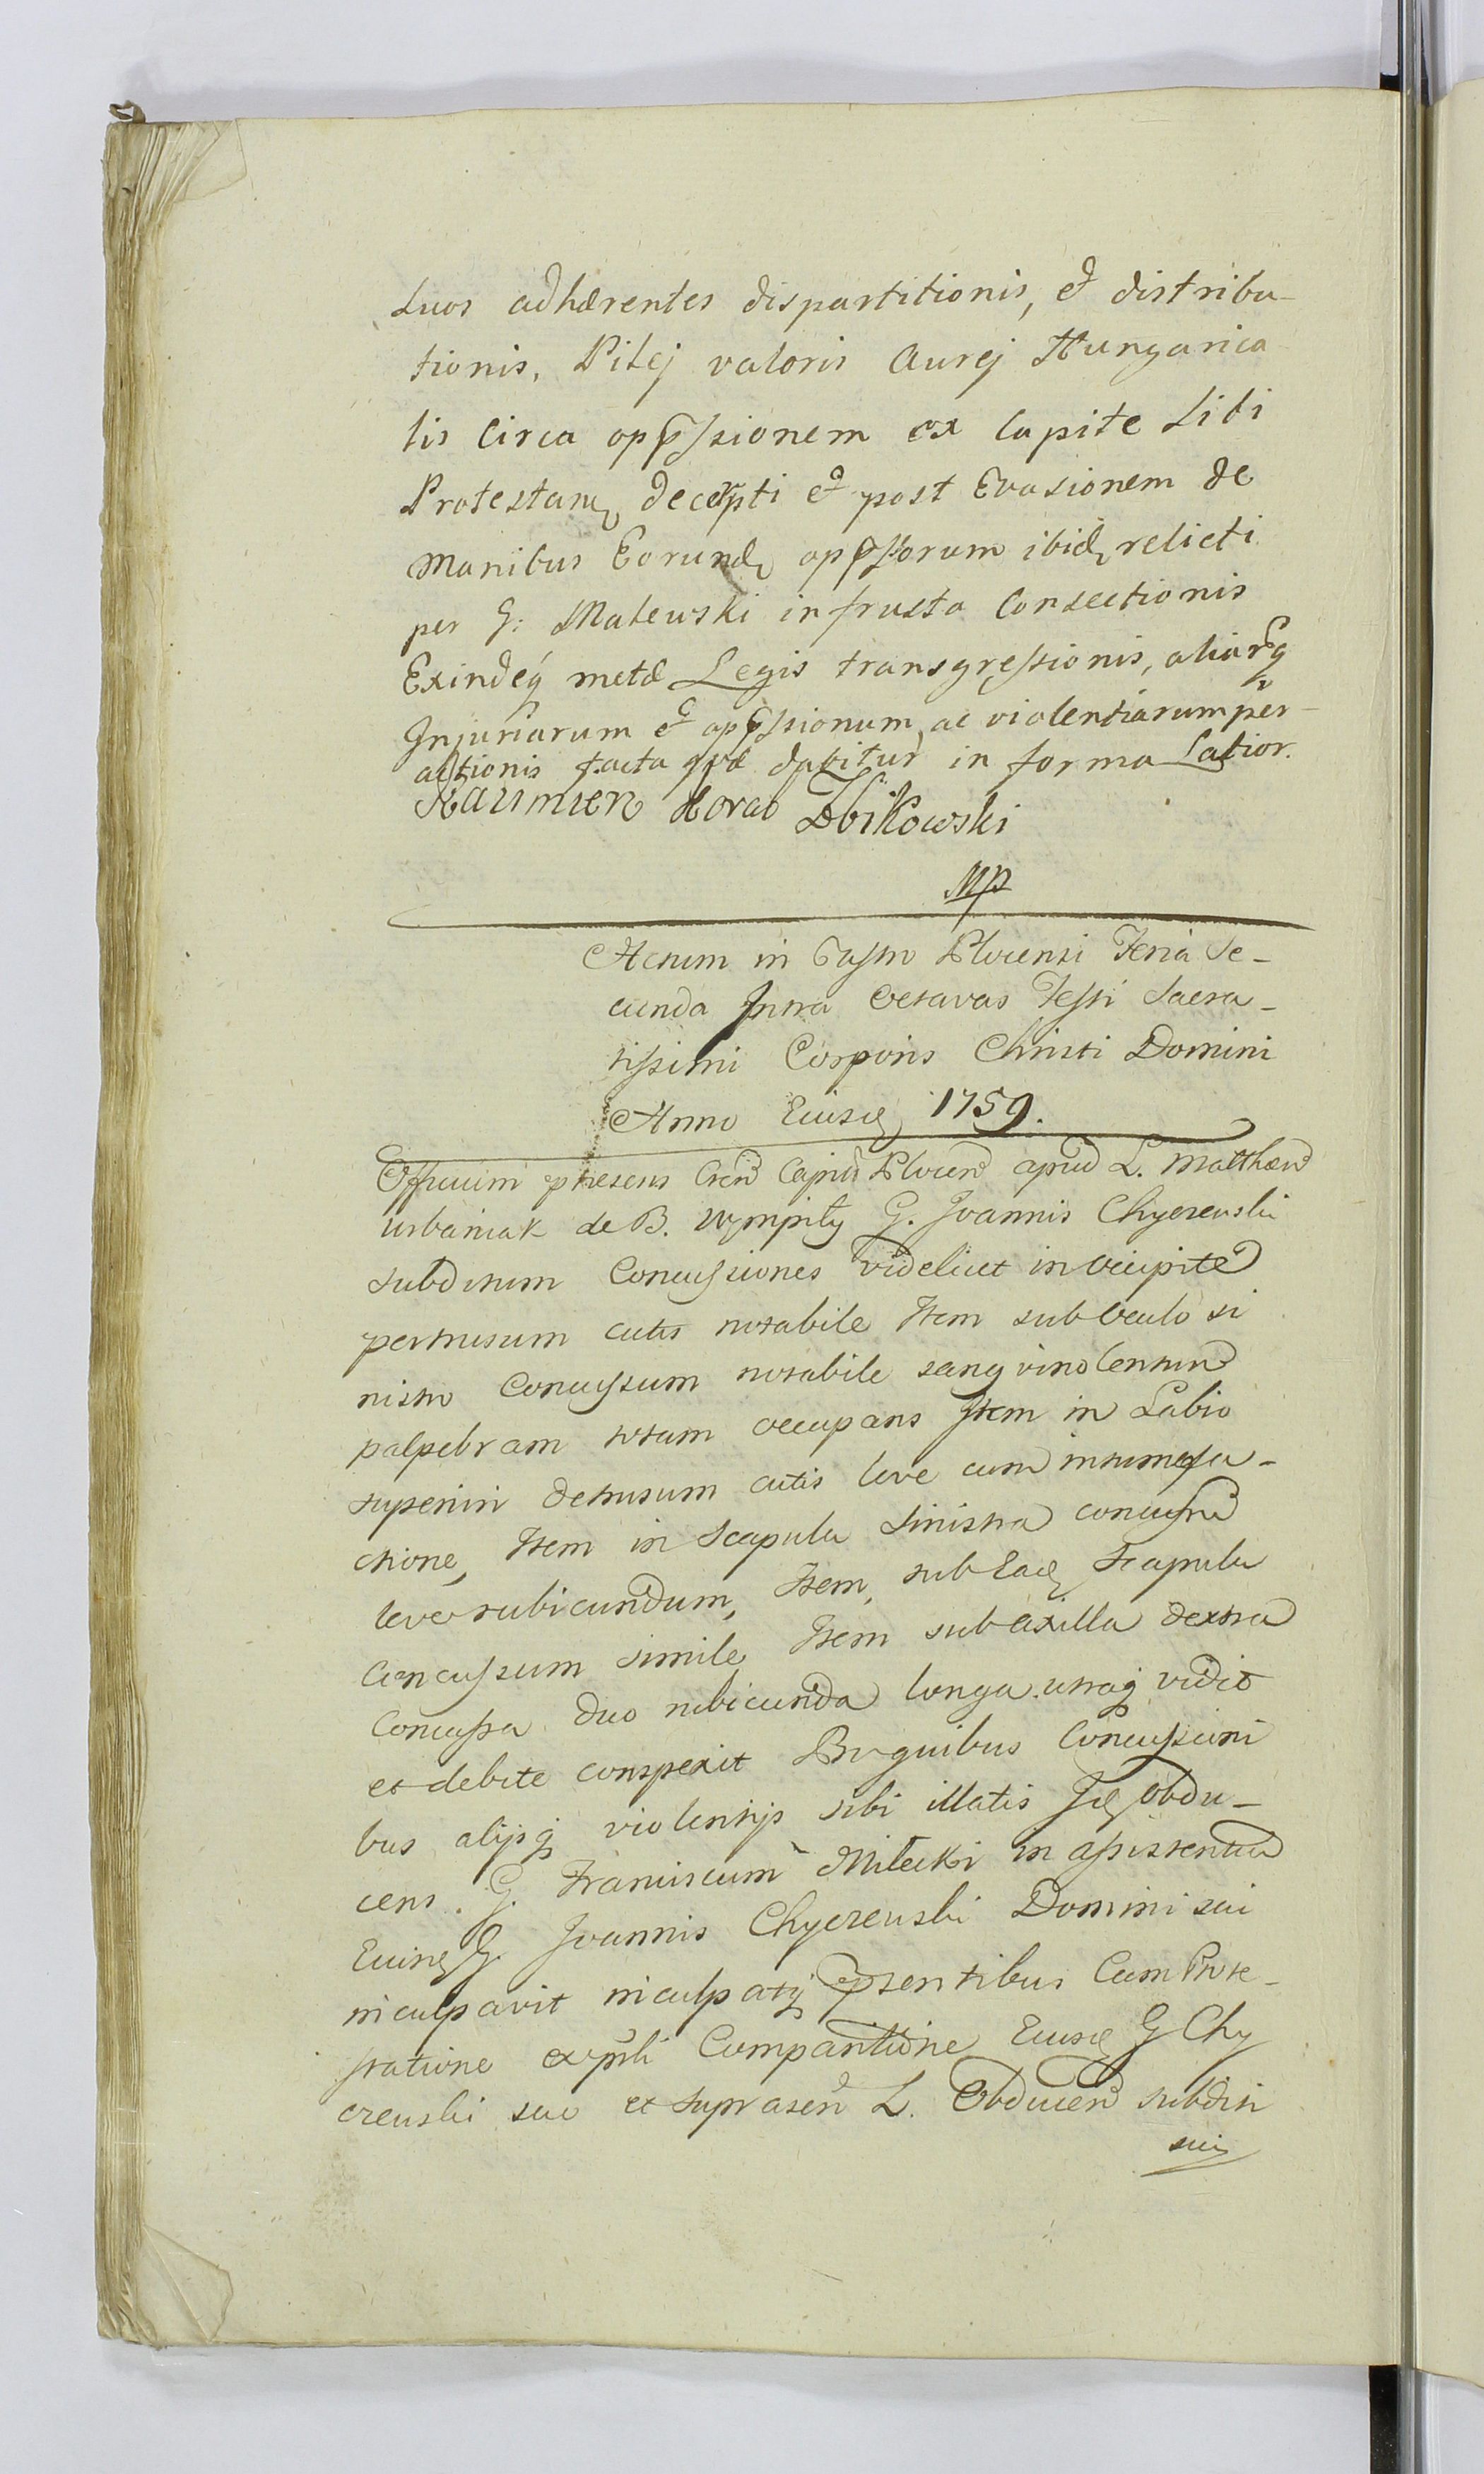 suos adhærentes dispartitionis, et distribu-
tionis, Pilej valoris Aurej Hungarica-
lis circa opp̃ssionem ex Capite Sibi
Protestanđ decerpti et post Evasionem de
Manibus Eorunđ opp̃ssorum ibiđ relicti
per G: Malewski in frusta Consectionis
Exindeq́ metæ Legis transgressionis, aliarq̃
Injuriarum et opp̃ssionum ac violentiarum per-
actionis facta quæ dabitur in forma Latior.
Kazimierz Zbikowski
Mp
Actum in Castro Plocensi Feria Se-
cunda Intra Octavas Festi Sacra-
tissimi Corporis Christi Domini
Anno Eiusđ 1759.
Officium præsens Cren̄ Capit̄ Plocen̄ apud L. Matthæum
Urbaniak de B. G. Joannis Chyczewski
subditum Concussiones videlicet in occipite
pertusum cutis notabile Item sub oculo si
nistro Concussum notabile sangvinolentum
palpebram totam occupans Item in Labio
superiori detrusum cutis leve cum intumefa-
ctione, Item in Scapula sinistra concussum
leve rubicundum, Item, sub Eađ Scapula
Concussum simile Item sub axilla dextra
Concussa duo rubicunda longa utraq́ vidit
et debite conspexit Pro quibus Concussioni
bus alijsq́ violentijs sibi illatis Iđ obdu-
cens. G. Franciscum Milecki in assistentia
Eiusđ G. Joannis Chyczewski Domini sui
inculpavit inculpatq́ p̃sentibus Cum Prote-
statione Comparitione Eiusđ G Chy
czewski suo et suprascr̄ L. Obducen̄ subditi
sui